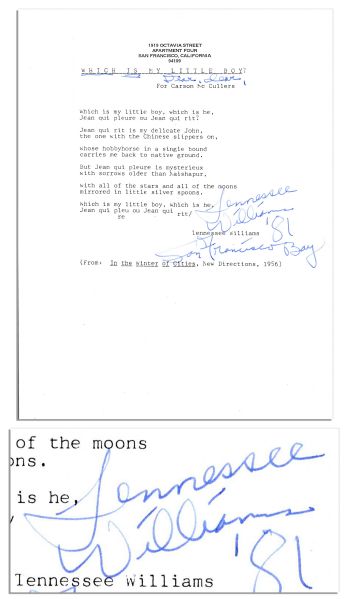 1919 OCTAVIA STREET
APARTMENT FOUR
SAN FRANCISCO, CALIFORNIA
94109
WHICH IS MY LITTLE BOY?
Dear, dear,
For Carson Mc Cullers
Which is my little boy, which is he,
Jean qui pleure ou Jean qui rit?
Jean qui rit is my delicate John,
the one with the Chinese slippers on,
whose hobbyhorse in a single bound
carries me back to native ground.
But Jean qui pleure is mysterieux
with sorrows older than Naishapur,
with all of the stars and all of the moons
mirrored in little silver spoons.
Which is my little boy, which is he,
Jean qui pleu ou Jean qui rit/
re
Tennessee
Williams
'81
Tennessee Williams
San Francisco Bay
(From: In the Winter of Cities, New Directions, 1956)
of the moons
ons.
is he,
Tennessee
Williams
'81
Tennessee Williams